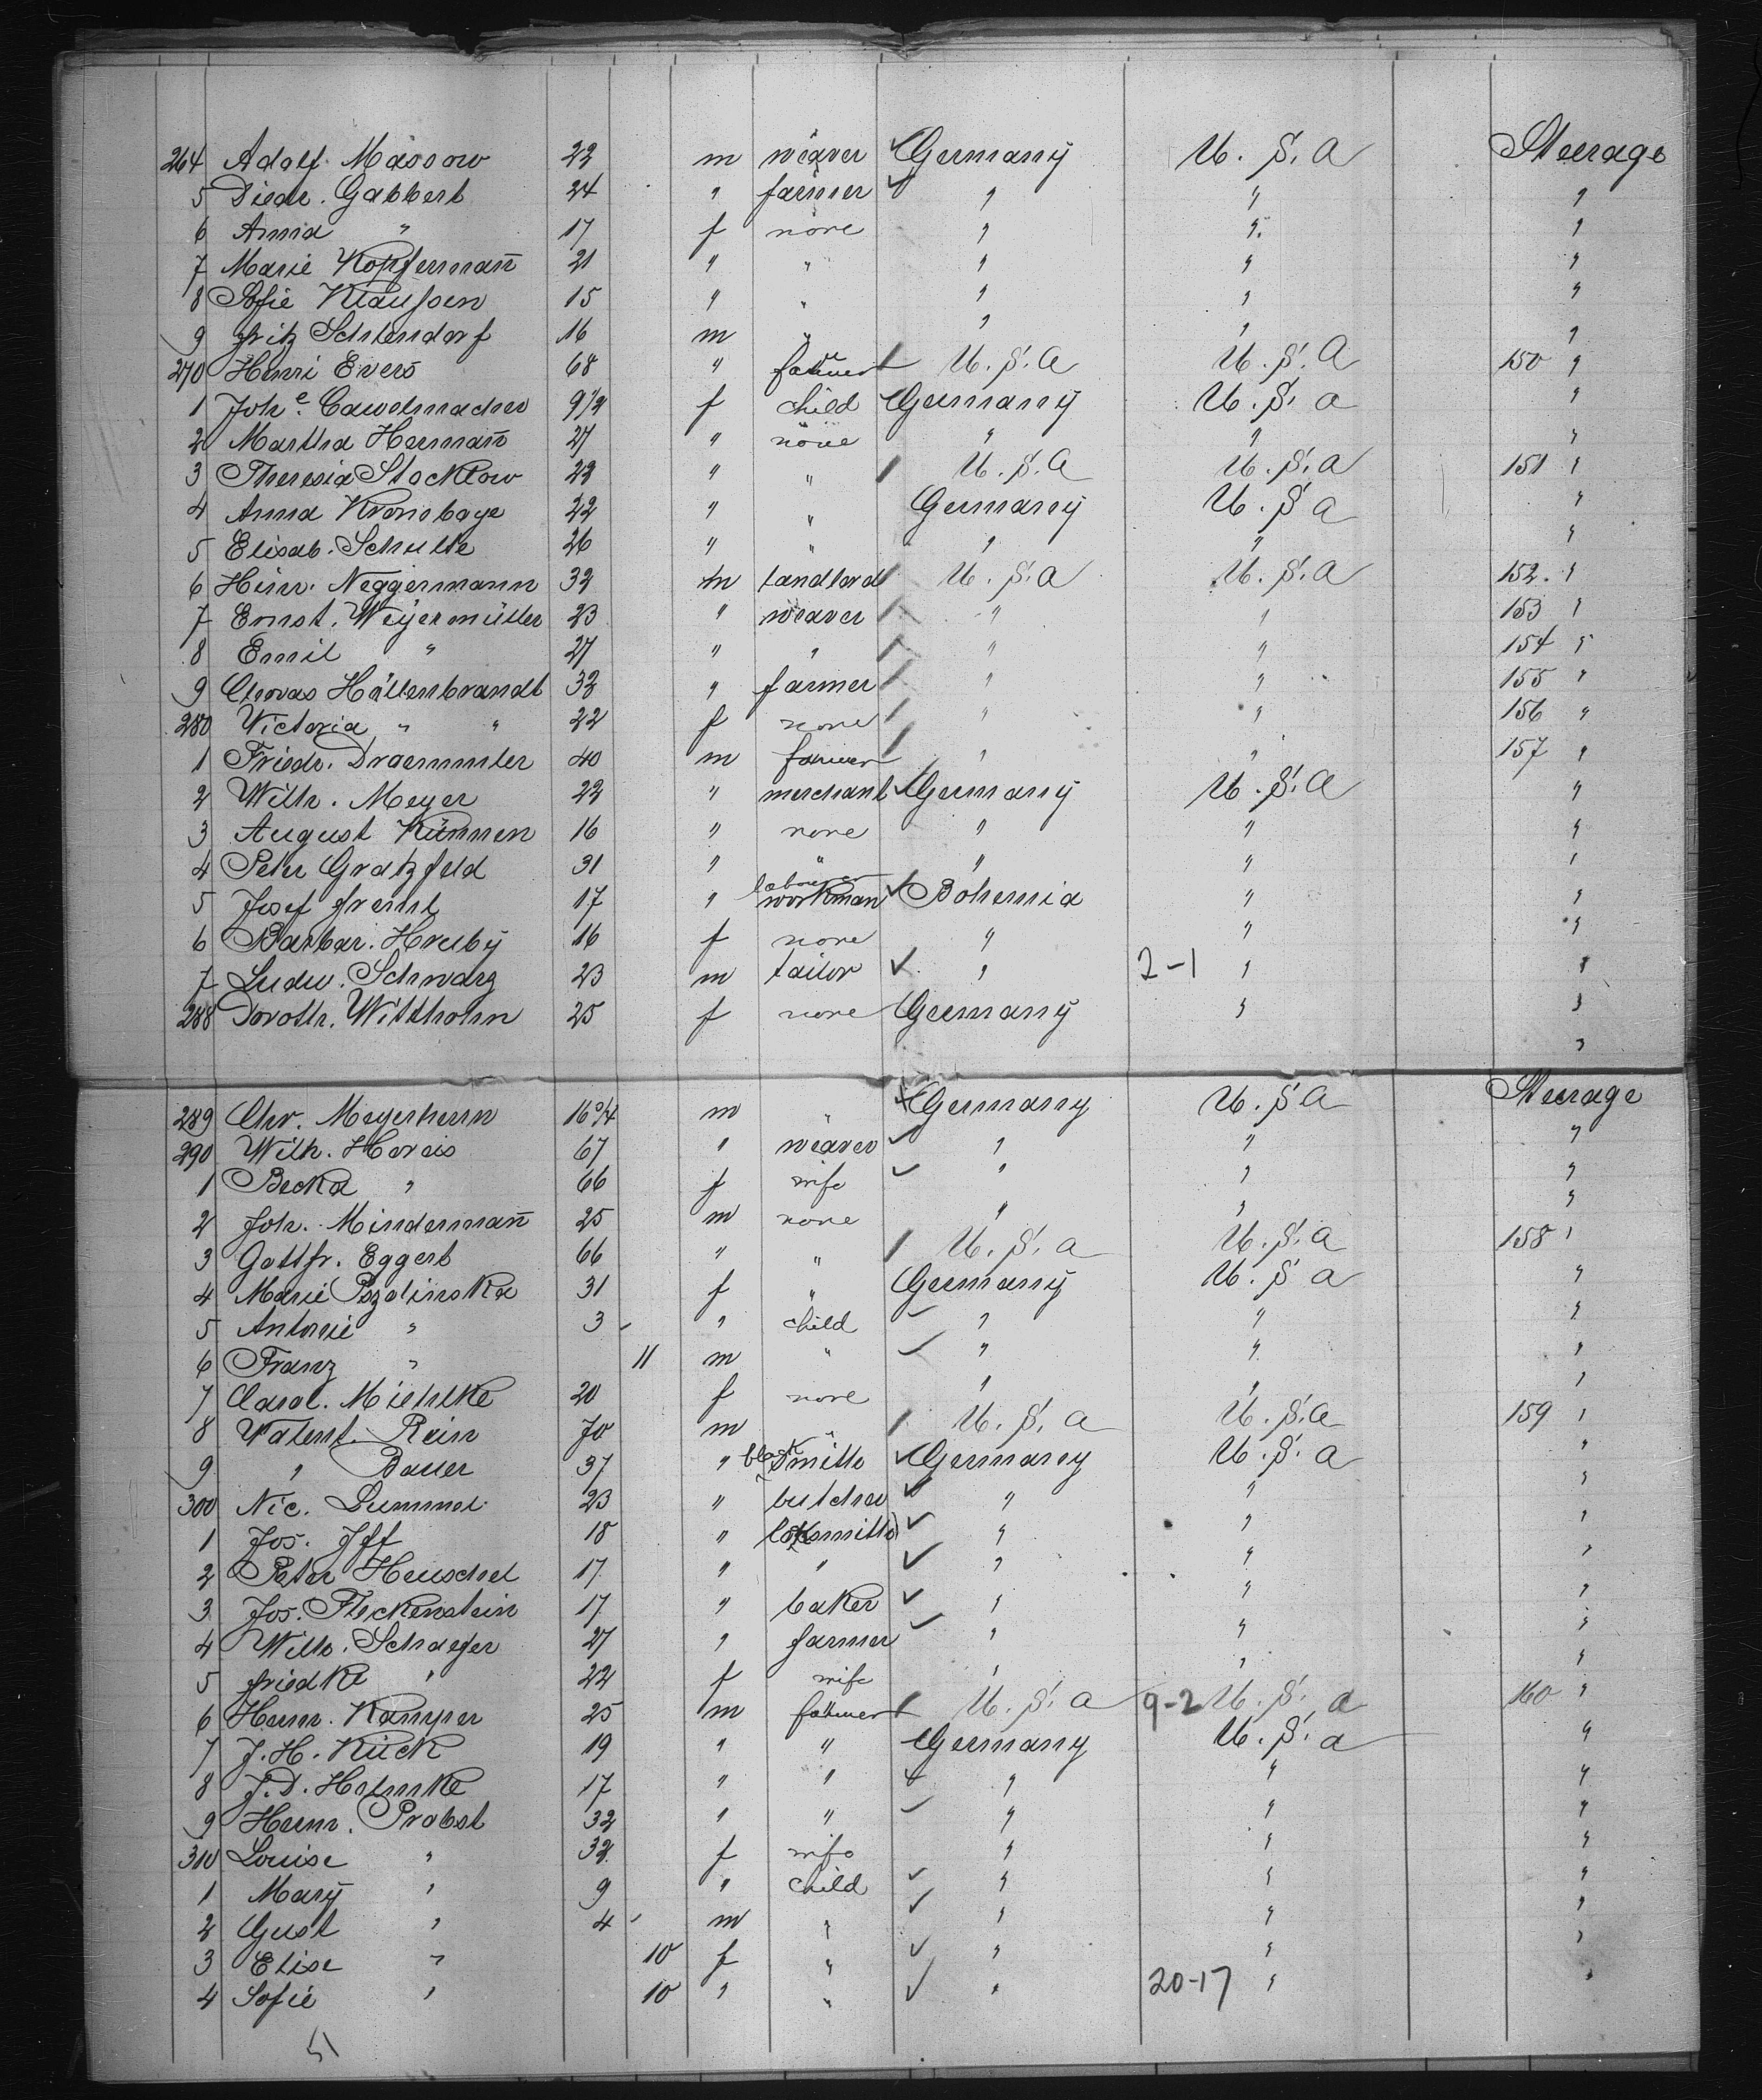 264 Adolf. Massow 22 m weaver Germany U. S. A Steerage
5 Diedr. Gabbert 24 " farmer " " "
6 Anna " 17 f none " " "
7 Marie Kopfermañ 21 " " " " "
8 Sofie Klaussen 15 " " " " "
9 Fritz Schlendorf 16 m " " " "
270 Henri Evers 68 " farmer U. S. A U. S. A 150 "
1 Joh e. 9½ f child Germany U. S. A "
2 Martha Hermañ 27 " none " " "
3 Theresia Stocklow 22 " " U. S. A U. S. A 151 "
4 Anna 22 " " Germany U. S. A "
5 Elisab. Schulte 26 " " " " "
6 Hinr. Neggermann 32 m landlord U. S. A U. S. A 152. "
7 Ernst. Weyermüller 23 " weaver " " 153 "
8 Emil " 27 " " " " 154 "
9 Hallenbrandt 32 " farmer " " 155 "
280 Victoria " " 22 f none " " 156 "
1 Friedr. Draemmler 40 m farmer " " 157 "
2 Wilh. Meyer 22 " merchant Germany U. S. A "
3 August Künnen 16 " none " " "
4 Peter Gratzfeld 31 " " " " "
laborer
5 Josef 17 " workman Bohemia " "
6 Barbar. Hruby 16 f none " " "
7 Ludw. Schwarz 23 m tailor " 2-1 " "
288 Doroth. Wittholm 25 f none Germany " "
"
289 Chr. Meyerherm 16 ¾ m " Germany U. S A Steerage
290 Wilh. 67 " weaver " " "
1 Becka " 66 f wife " " "
2 Joh. Mindermañ 25 m none " " "
3 Gottfr. Eggert 66 " " U. S. A U. S. A 158 "
4 Marie 31 f " Germany U. S A "
5 Antonie " 3 " child " " "
6 Franz " 11 m " " " "
7 Carol. Miehlke 20 f none " " "
8 Valent. Rein 70 m " U. S. A U. S. A 159 "
9 " Bauer 37 " blacksmith Germany U. S. A "
300 Nic. Lummel 23 " butcher " " "
1 Jos. Iff 18 " locksmith " " "
2 Peter Heuschel 17 " " " " "
3 Jos. Fleckenstein 17 " baker " " "
4 Wilh. Schaefer 27 " farmer " " "
5 Friedke " 22 f wife " " "
6 Herm. Kamper 25 m farmer U. S. A 9-2 U. S. A 160 "
7 J. H. Kück 19 " " Germany U. S. A "
8 J. D. Helmke 17 " " " " "
9 Herm. Probst 32 " " " " "
310 Louise " 32 f wife " " "
1 Mary " 9 " child " " "
2 Gust " 4 m " " " "
3 Elise " 10 f " " " "
4 Sofie " 10 " " " 20-17 " "
51